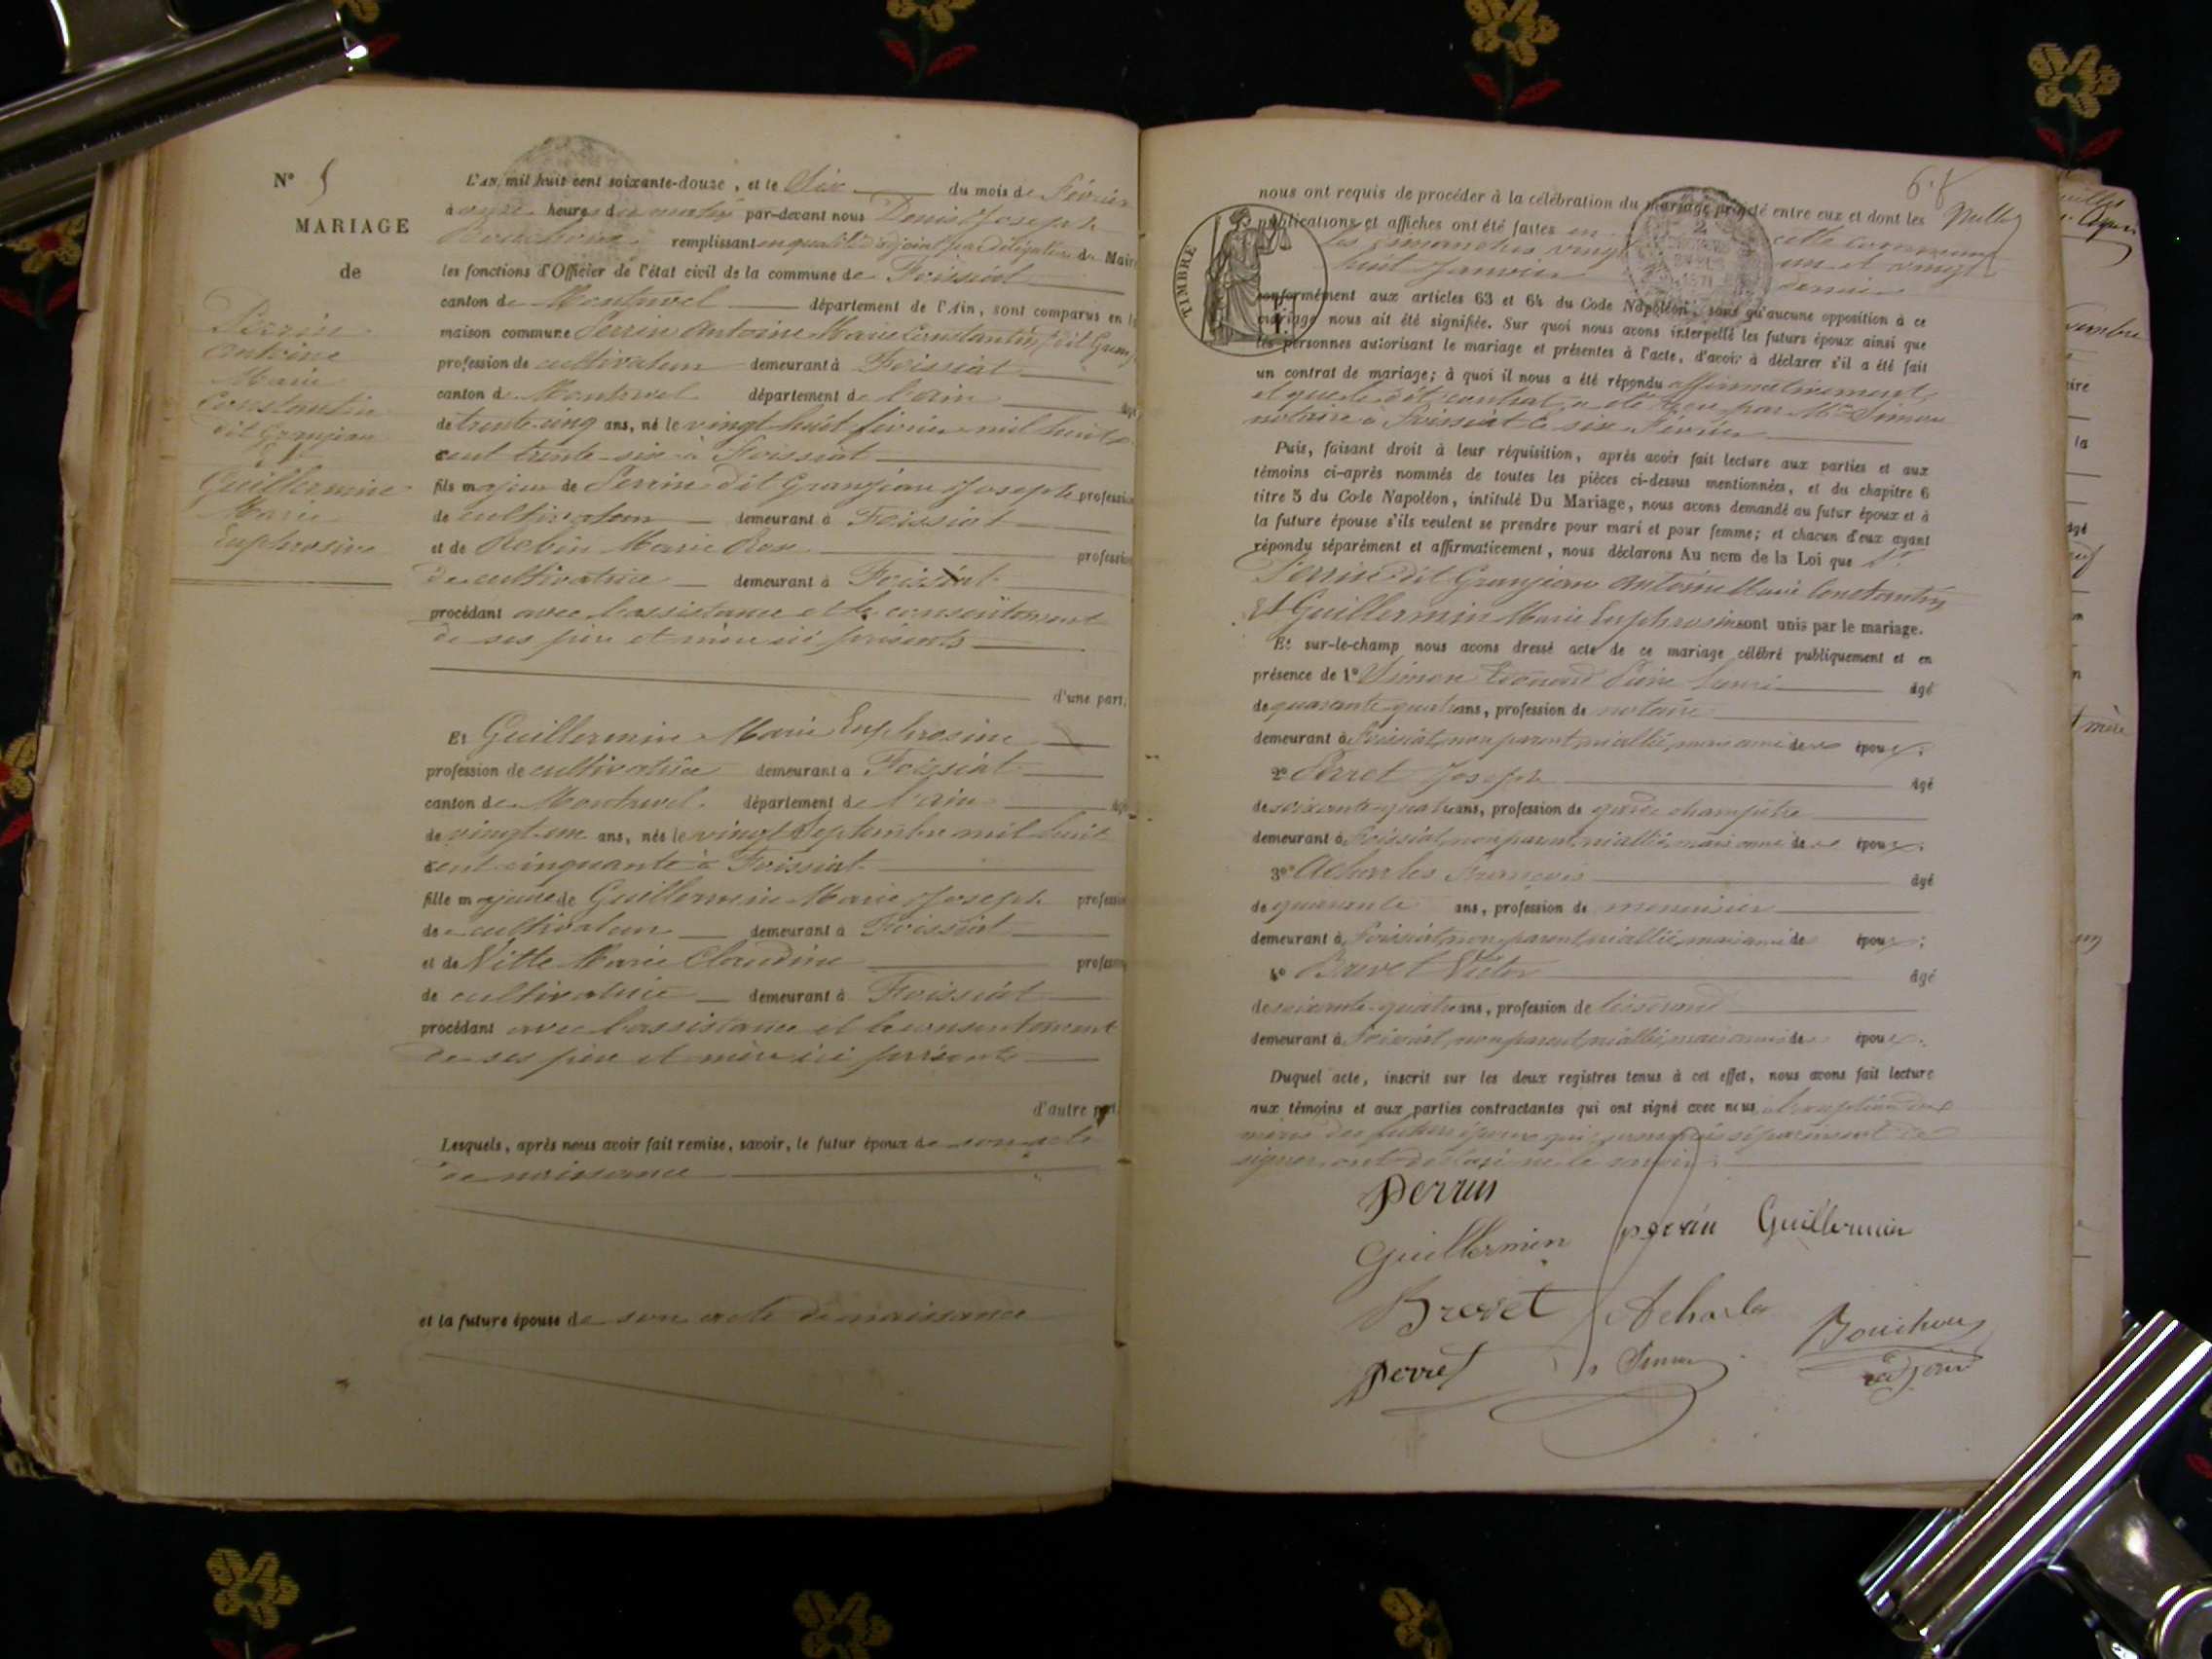 N° 5
MARIAGE
de
Perrin
Antoine
Marie
Constantin
dit Granjean
Et
Guillermine
Marie
Euphrosine
L'AN mil huit cent soixante-douze, et le Six du mois de Février
à onze heures du matin par-devant nous Denis Joseph
Bouchoux remplissant en qualité d'adjoint par délégation du Maire
les fonctions d'Officier de l'état civil de la commune de Foissiat
canton de Montrevel département de l'Ain, sont comparus en la
maison commune Perrin Antoine Marie Constantin dit Granj
profession de cultivateur demeurant à Foissiat
canton de Montrevel département de l'ain âgé
de trente cinq ans, né le vingt huit février mil huit
cent trente-six à Foissiat
fils majeur de Perrin dit Granjean Joseph profession
de cultivateur demeurant à Foissiat
et de Robin Marie Rose profession
de cultivatrice demeurant à Foissiat
procédant avec l'assistance et le consentement
de ses père et mère ici présents
d'une part,
Et Guillermin Marie Euphrosine
profession de cultivatrice demeurant à Foissiat
canton de Montrevel département de l'ain âgé
de vingt-un ans, née le vingt Septembre mil huit
cent cinquante à Foissiat
fille majeure de Guillermin Marie Joseph profession
de cultivateur demeurant à Foissiat
et de Vitte Marie Claudine profession
de cultivatrice demeurant à Foissiat
procédant avec l'assistance et le consentement
de ses père et mère ici présents
d'autre part.
Lesquels, après nous avoir fait remise, savoir, le futur époux de son acte
de naissance
et la future épouse de son acte de naissance
nous ont requis de procéder à la célébration du mariage projeté entre eux et dont les
publications et affiches ont été faites en cette commune
les dimanches vingt un et vingt
huit Janvier dernier
TIMBRE
conformément aux articles 63 et 64 du Code Napoléon, sans qu'aucune opposition à ce
mariage nous ait été signifiée. Sur quoi nous avons interpellé les futurs époux ainsi que
les personnes autorisant le mariage et présentes à l'acte, d'avoir à déclarer s'il a été fait
un contrat de mariage; à quoi il nous a été répondu affirmativement,
et que le dit contrat a été reçu par Me Simon
notaire à Foissiat le six Février
Puis, faisant droit à leur réquisition, après avoir fait lecture aux parties et aux
témoins ci-après nommés de toutes les pièces ci-dessus mentionnées, et du chapitre 6
titre 5 du Code Napoléon, intitulé Du Mariage, nous avons demandé au futur époux et à
la future épouse s'ils veulent se prendre pour mari et pour femme; et chacun d'eux ayant
répondu séparément et affirmativement, nous déclarons Au nom de la Loi que
Perrin dit Granjean Antoine Marie Constantin
Et Guillermin Marie Euphrosine sont unis par le mariage.
Et sur-le-champ nous avons dressé acte de ce mariage célébré publiquement et en
présence de 1° Simon Edouard Pierre âgé
de quarante-quatre ans, profession de notaire
demeurant à Foissiat, non parent, ni allié, mais ami des époux;
2° Perret Joseph âgé
de soixante-quatre ans, profession de garde champêtre
demeurant à Foissiat, non parent, ni allié, mais ami des époux;
3° Acharles François âgé
de quarante ans, profession de menuisier
demeurant à Foissiat, non parent, ni allié, mais ami des époux;
4° Brevet Victor âgé
de soixante-quatre ans, profession de tisserand
demeurant à Foissiat, non parent, ni allié, mais ami des époux.
Duquel acte, inscrit sur les deux registres tenus à cet effet, nous avons fait lecture
aux témoins et aux parties contractantes qui ont signé avec nous, à l'exception des
mères des futurs époux qui séparément de
signer, ont déclaré ne le savoir
Perrin
Guillermin perrin Guillermin
Brevet Acharles
Bouchoux
adjoint
perret Simon